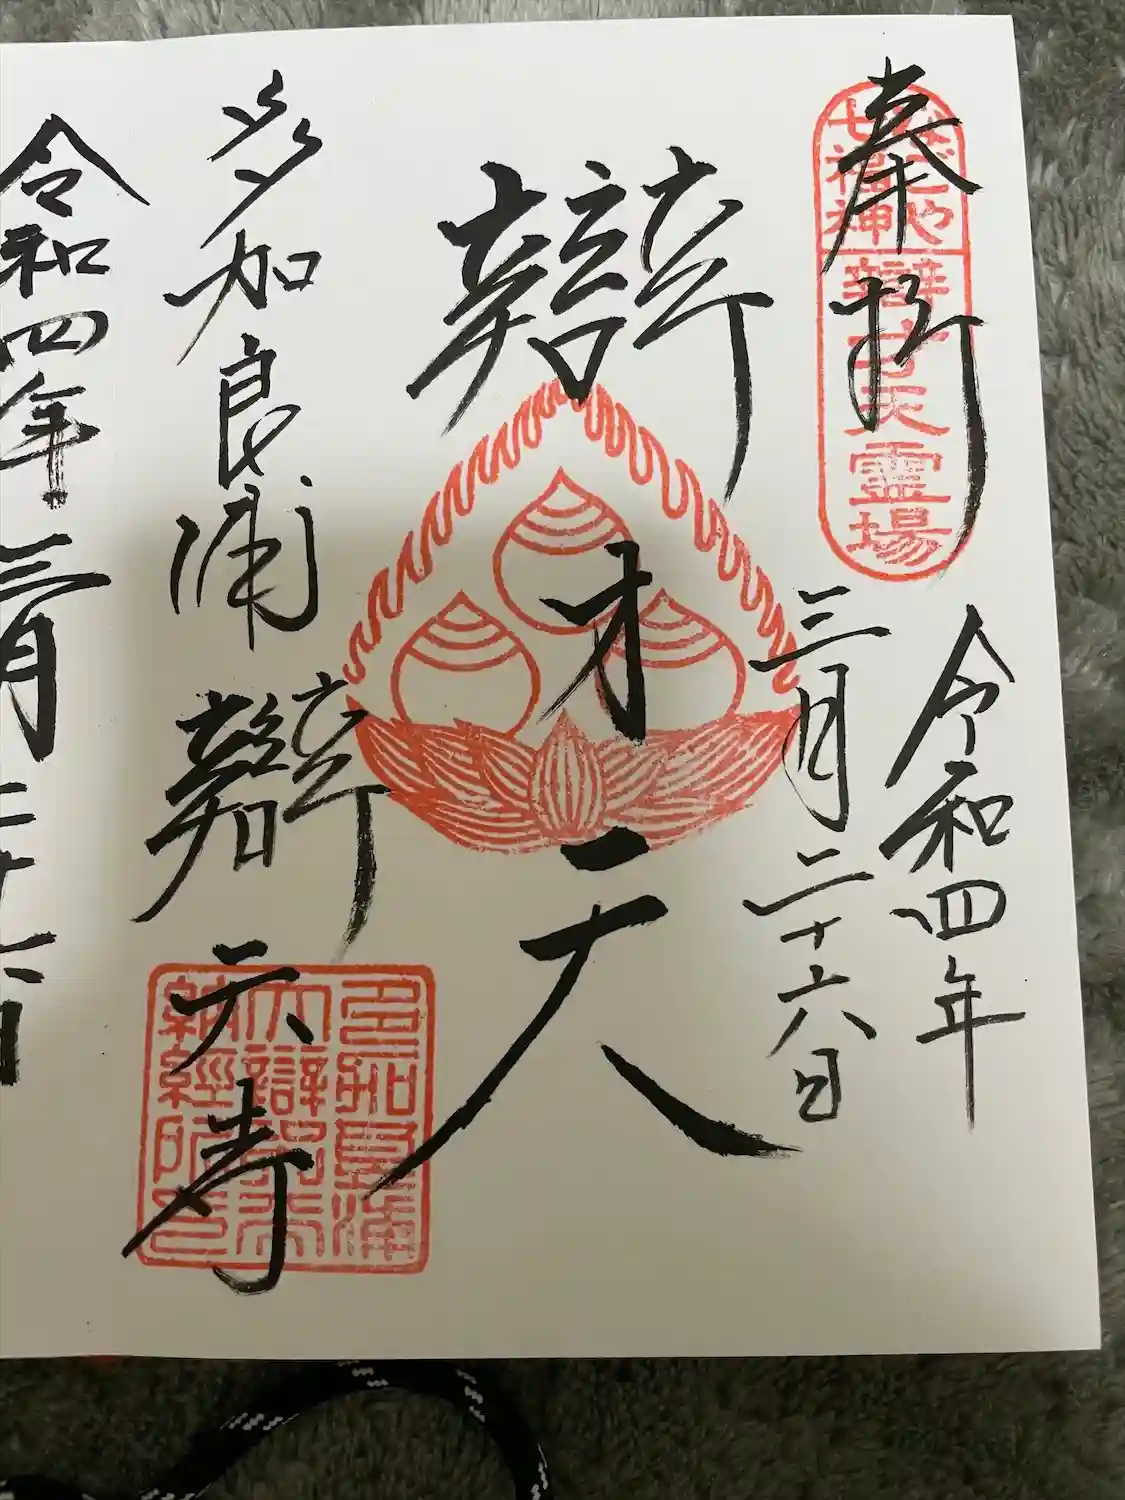 奉拝
なごや
七福神
辯才天霊場
令和四年
三月二十六日
辯才天
多加良浦 辯天寺
納経印
令和四年三月二十六日